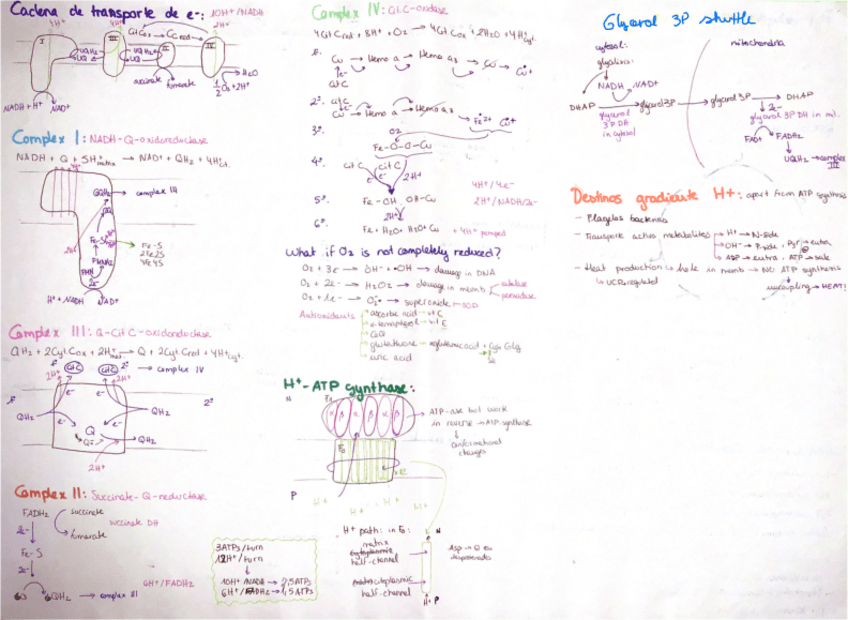 Cadena de transporte de e-: 10H+/NADH
4H+
4H+
2H+
Cit Cox
Cc red
I
III
II
IV
UQH2
UQ
UQH2
UQ
succinate
fumarate
H2O
1/2 O2 + 2H+
NADH + H+
NAD+
Complex I: NADH-Q-oxidoreductase
NADH + Q + 5H+ matrix → NAD+ + QH2 + 4H+ cit.
QH2 → complex III
Fe-S
Fe-S
2Fe2S
4Fe4S
FMNH2
FMN
2e-
H+ + NADH
NAD+
Complex III: Q-Cit C-oxidoreductase
QH2 + 2Cyt.Cox + 2H+ → Q + 2Cyt Cred + 4H+ cyt.
Cit C
Cit C
2º
→ complex IV
2H+
2H+
e-
e-
1º
2º
QH2
e-
e-
QH2
Q
Q-
QH2
2H+
Complex II: Succinate-Q-reductase
FADH2
succinate
succinate DH
2e-
fumarate
Fe-S
2e-
Q
QH2 → complex III
6H+/FADH2
Complex IV: Cit C-oxidase
4Cit Cred + 8H+ + O2 → 4Cit Cox + 2H2O + 4H+ cyt.
1º.
Cu → Hemo a → Hemo a3 → Cu → Cu+
e-
cit C
2º.
cit C
Cu → Hemo a → Hemo a3 → Fe2+
Cu+
3º.
O2
Fe-O-O-Cu
4º.
cit C
cit C
e-
e-
2H+
5º.
Fe-OH, OH-Cu
4H+/4e-
2H+/NADH/2e-
2H+
6º.
Fe + H2O + H2O + Cu + 4H+ pumped
What if O2 is not completely reduced?
O2 + 3e- → OH- + •OH → damage in DNA
O2 + 2e- → H2O2 → damage in memb
catalase
peroxidase
O2 + 1e- → O2•- → superoxide - SOD
Antioxidants
ascorbic acid - vit C
α-tocopherol - vit E
CoQ
glutathione
uric acid
H+-ATP synthase:
N
F1
α
β
α
β
α
β
ATP-ase but work
in reverse → ATP synthase
conformational
changes
F0
P
H+
H+
H+
H+
3ATPs/turn
12H+/turn
10H+/NADH → 2,5ATPs
6H+/FADH2 → 1,5ATPs
H+ path: in F0:
matrix
half-channel
cytoplasmic
half-channel
N
H+ P
Asp-⊖ en
Glycerol 3P shuttle
cytosol:
mitochondria
glycolisis:
NADH
NAD+
DHAP
glycerol 3P
glycerol 3P
DHAP
glycerol
3P DH
in cytosol
2e-
glycerol 3P DH in mit.
FAD+
FADH2
UQH2 → complex
III
Destinos gradiente H+: apart from ATP synthesis
- Flagelos bacterias
- Transporte activo metabolites
H+ → N-side
OH- → P-side, Pyr → entra
ADP → entra, ATP → sale
- Heat production → hole in memb → NO ATP synthesis
UCP-regulated
uncoupling → HEAT!